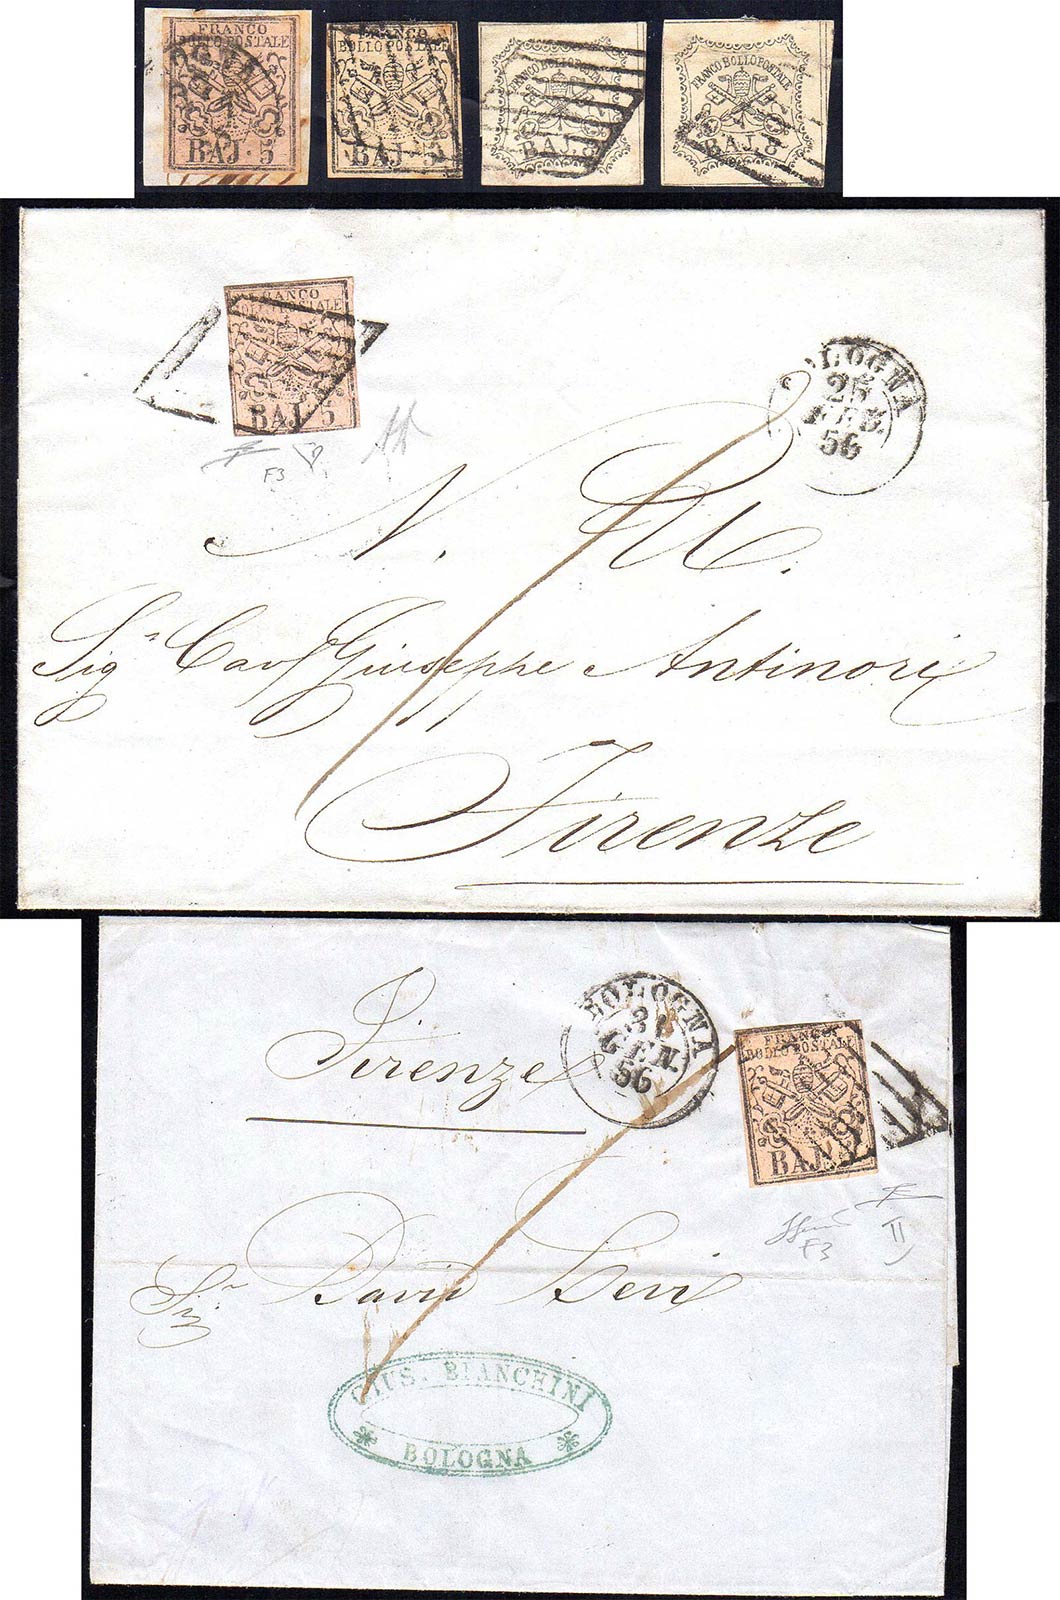 FRANCO
BOLLO POSTALE
BAJ. 5
FRANCO
BOLLO POSTALE
BAJ. 5
FRANCO BOLLO POSTALE
BAJ. 8
FRANCO BOLLO POSTALE
BAJ. 8
FRANCO
BOLLO POSTALE
BAJ. 5
F3
BOLOGNA
25
FEB.
56
N. U.
Sigr Cavr Giuseppe Antinori
Firenze
Firenze
BOLOGNA
31
GEN.
56
FRANCO
BOLLO POSTALE
BAJ. 5
F3
II
Sigr David Levi
GIUS. BIANCHINI
BOLOGNA